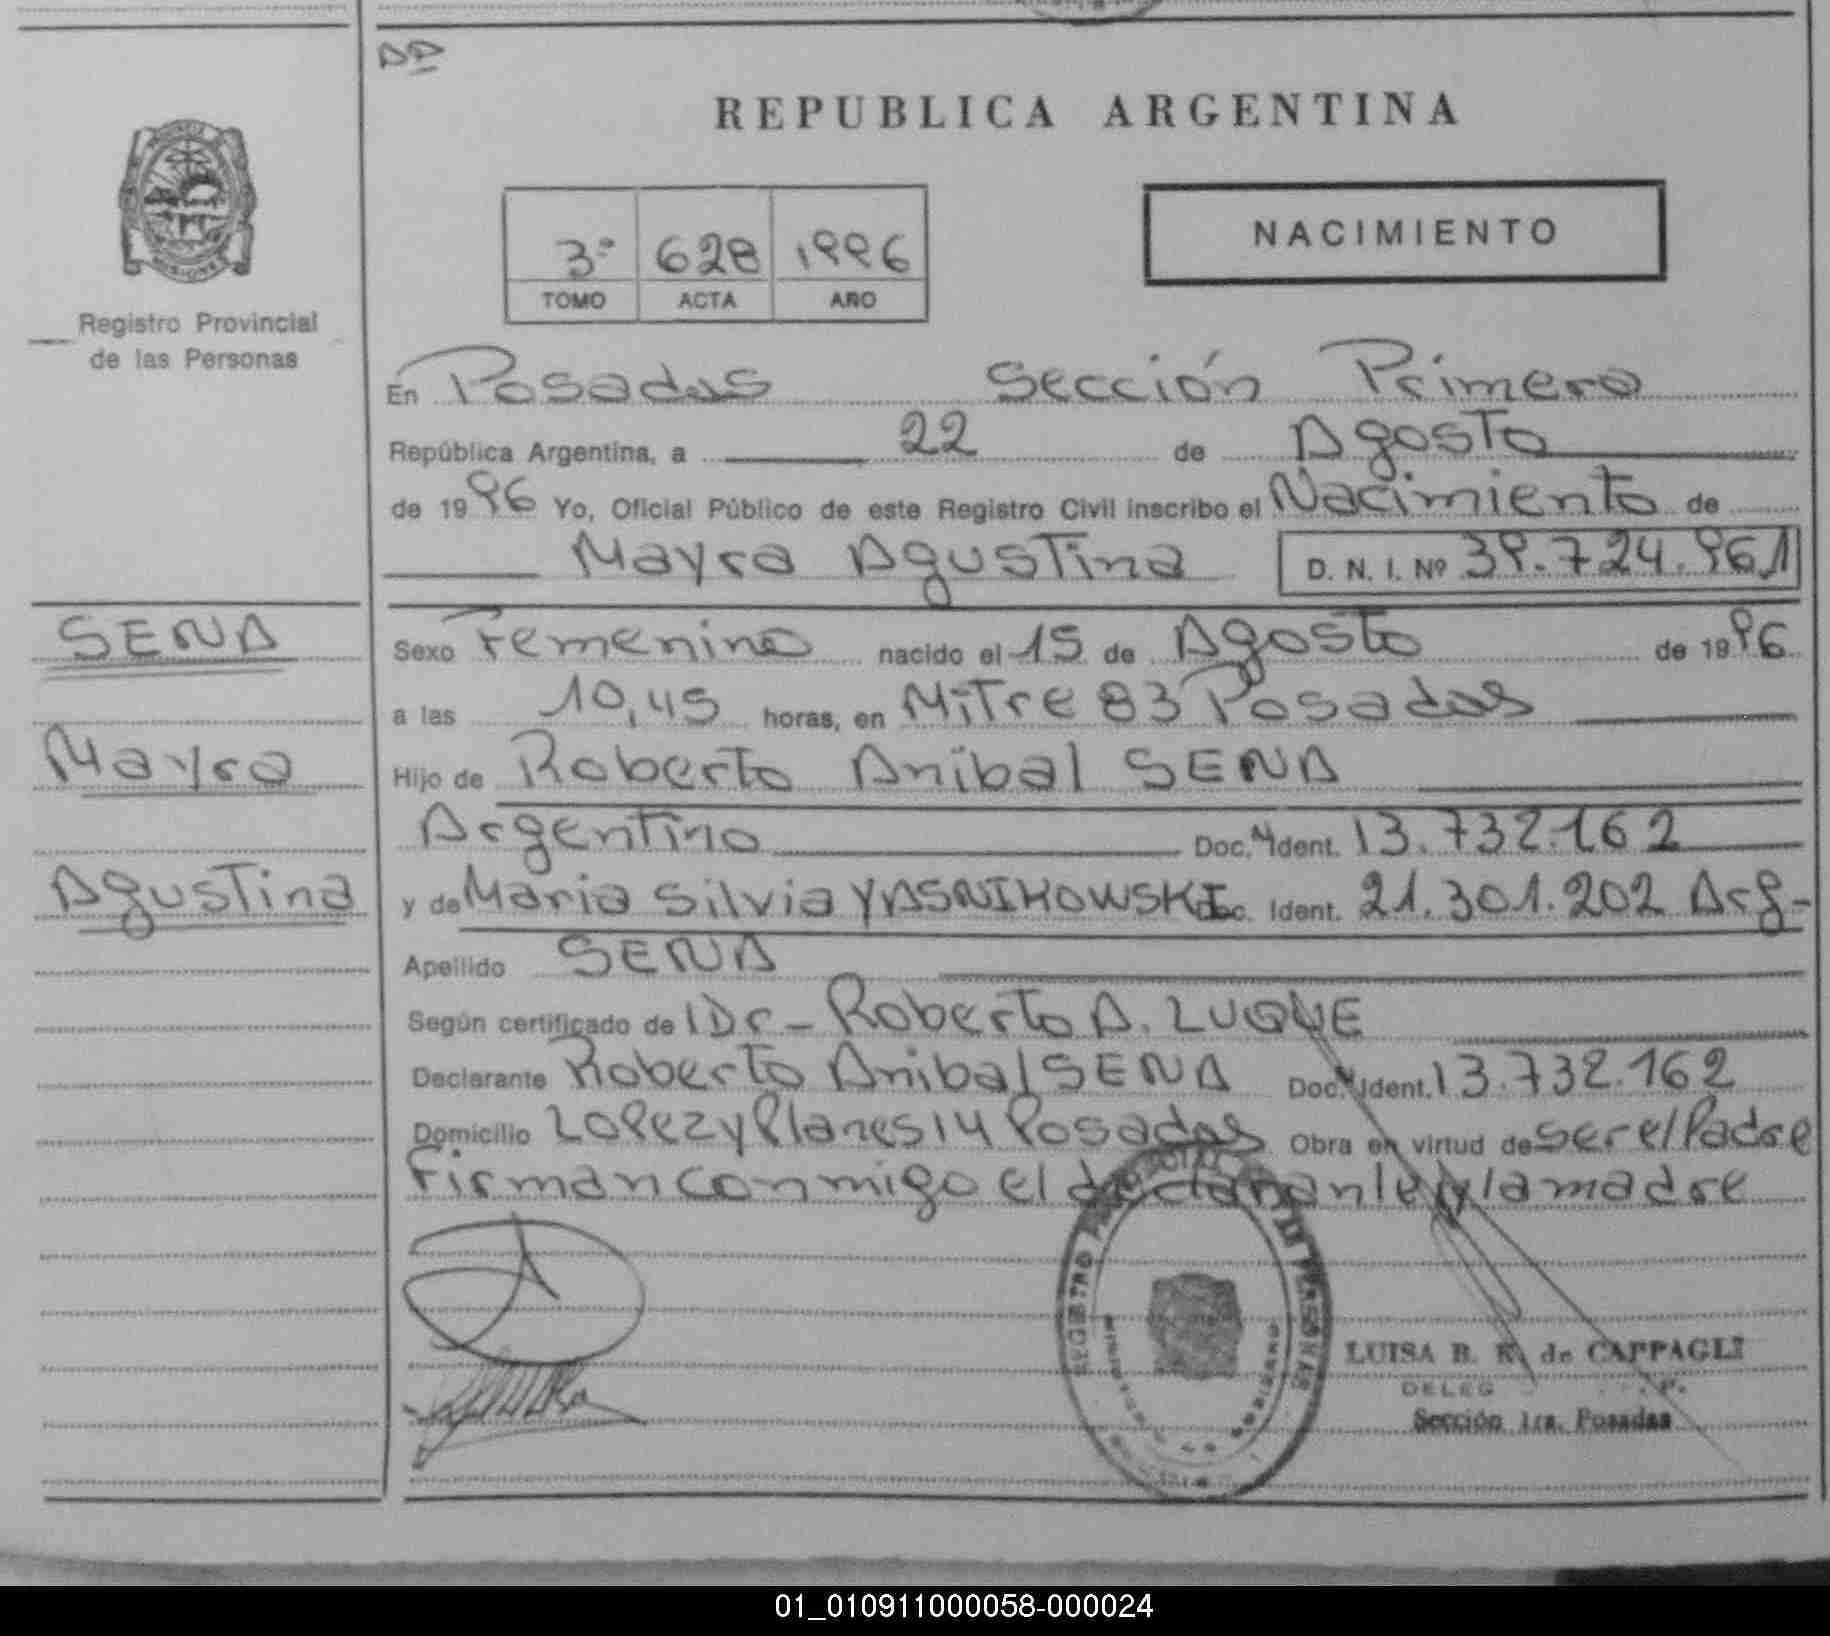 DP
REPUBLICA ARGENTINA
NACIMIENTO
3º 628 1996
TOMO ACTA AÑO
Registro Provincial
de las Personas
En Posadas Sección Primera
República Argentina, a 22 de Agosto
de 1996 Yo, Oficial Público de este Registro Civil inscribo el Nacimiento de
Mayra Agustina D. N. I. Nº 39.724.961
SENA
Sexo Femenino nacido el 15 de Agosto de 1996
a las 10,45 horas, en Mitre 83 Posadas
Mayra
Hijo de Roberto Anibal SENA
Argentino Doc. Ident. 13.732.162
Agustina
y de Maria Silvia YASNIKOWSKI Doc. Ident. 21.301.202 Arg-
Apellido SENA
Según certificado de Dr- Roberto A. LUQUE
Declarante Roberto Anibal SENA Doc. Ident. 13.732.162
Domicilio Lopez y Planes 14 Posadas Obra en virtud de ser el Padre
Firman conmigo el declarante y la madre
REGISTRO DE LAS PERSONAS
LUISA B. K. de CAPPAGLI
DELEG
Sección 1ra. Posadas
01_010911000058-000024